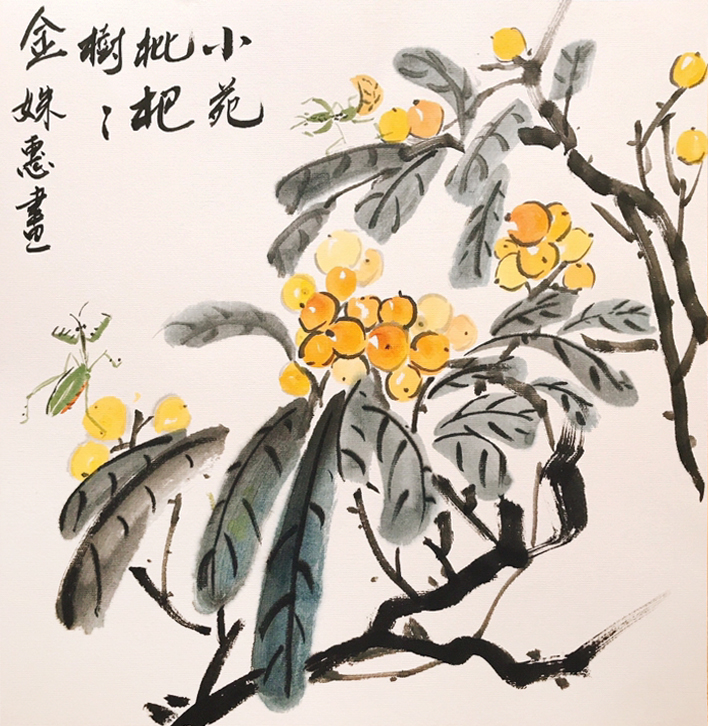 小苑
枇杷
樹〻
金姝惠畫